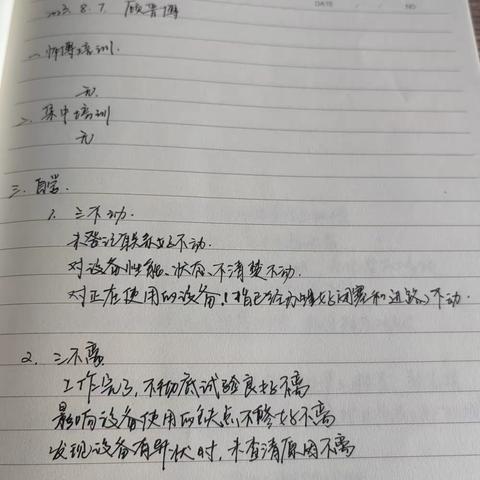 2023. 8. 7. 顾晋博
DATE / / NO
一、师傅培训.
无.
二、集中培训
无
三、自学.
1. 三不动.
未登记联系好不动.
对设备性能、状态、不清楚不动.
对正在使用的设备、(指已经办理好闭塞和进路)不动.
2. 三不离
工作完了,不彻底试验良好不离
影响设备使用的缺点不修好不离
发现设备有异状时,未查清原因不离